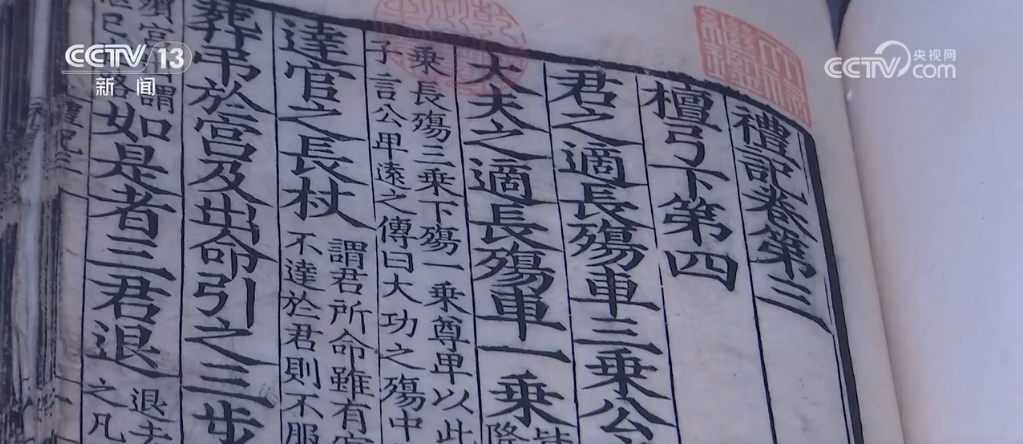 CCTV 13
新闻
央视网
CCTV.com
禮記卷第三
檀弓下第四
君之適長殤車三乘公
大夫之適長殤車一乘
皆
降
乘長殤三乘下殤一乘尊卑以此
子言公卑遠之傳曰大功之殤中
達官之長杖
謂君所命雖有官
不達於君則不服
葬弔於宮及出命引之三步
謂
如是者三君退
退去
之凡